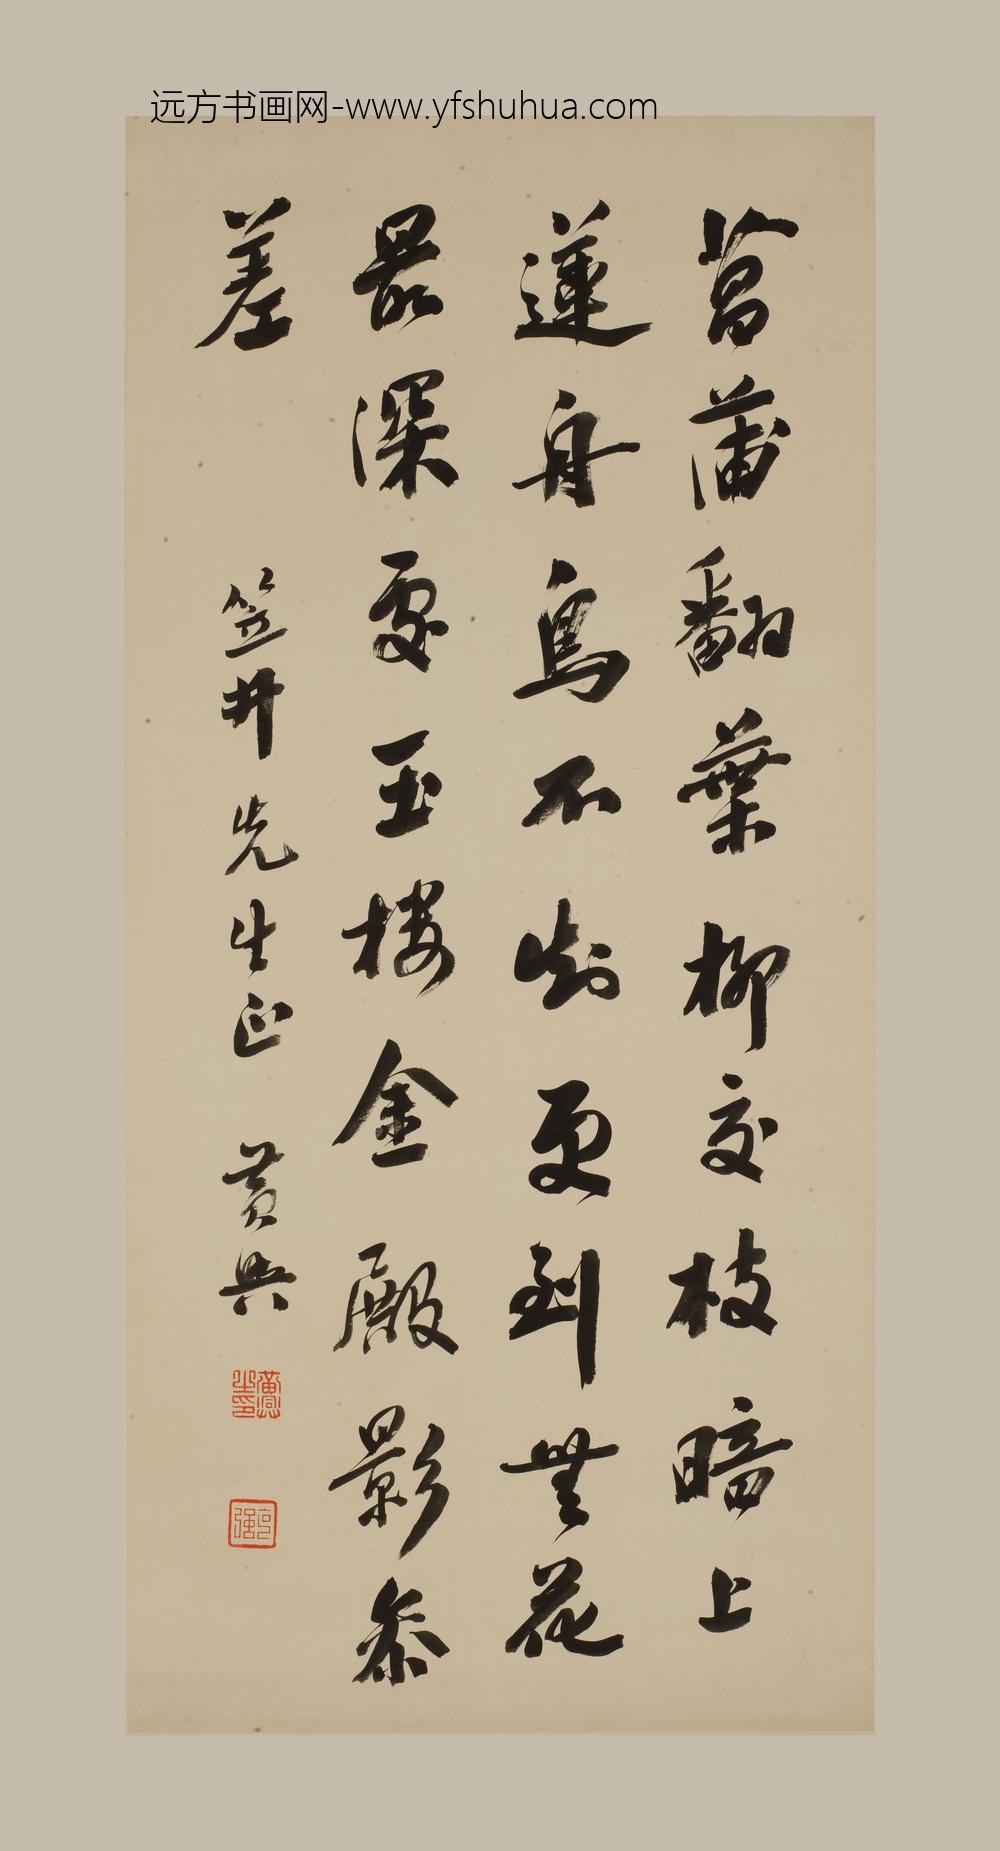 远方书画网-www.yfshuhua.com
菖蒲翻葉柳交枝暗上
蓮舟鳥不知更到無花
最深處玉樓金殿影參
差
笠井先生正 黃興